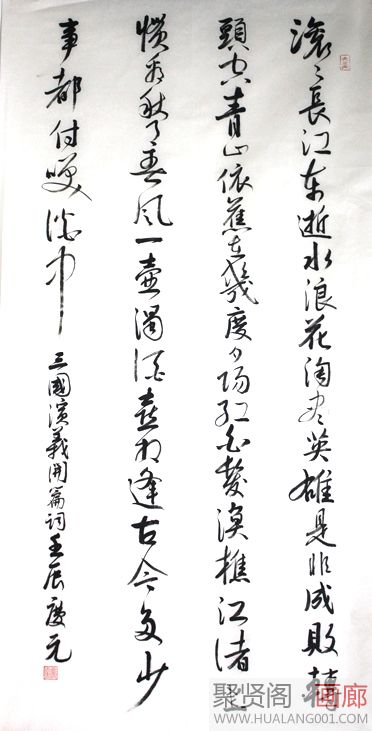 滚々長江东逝水浪花淘尽英雄是非成敗轉
頭空青山依舊在幾度夕阳红白髮漁樵江渚上
慣看秋月春风一壺濁酒喜相逢古今多少
事都付笑談中
三國演義開篇词壬辰慶元
聚贤阁画廊
WWW.HUALANG001.COM